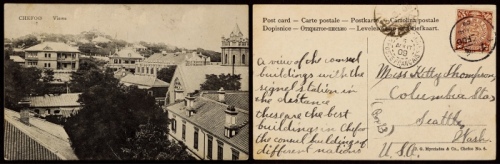 CHEFOO Views
Post card — Carte postale — Postkarte — Cartolina postale
Dopisnice — Открытое письмо — Levelező-Lap — Briefkaart.
a view of the consul
buildings with the
signal station in
the distance
these are the best
buildings in Chefoo
the consul buildings of
different nations
Miss Kitty Thompson
Columbia Sta
Seattle
Wash.
U.S.